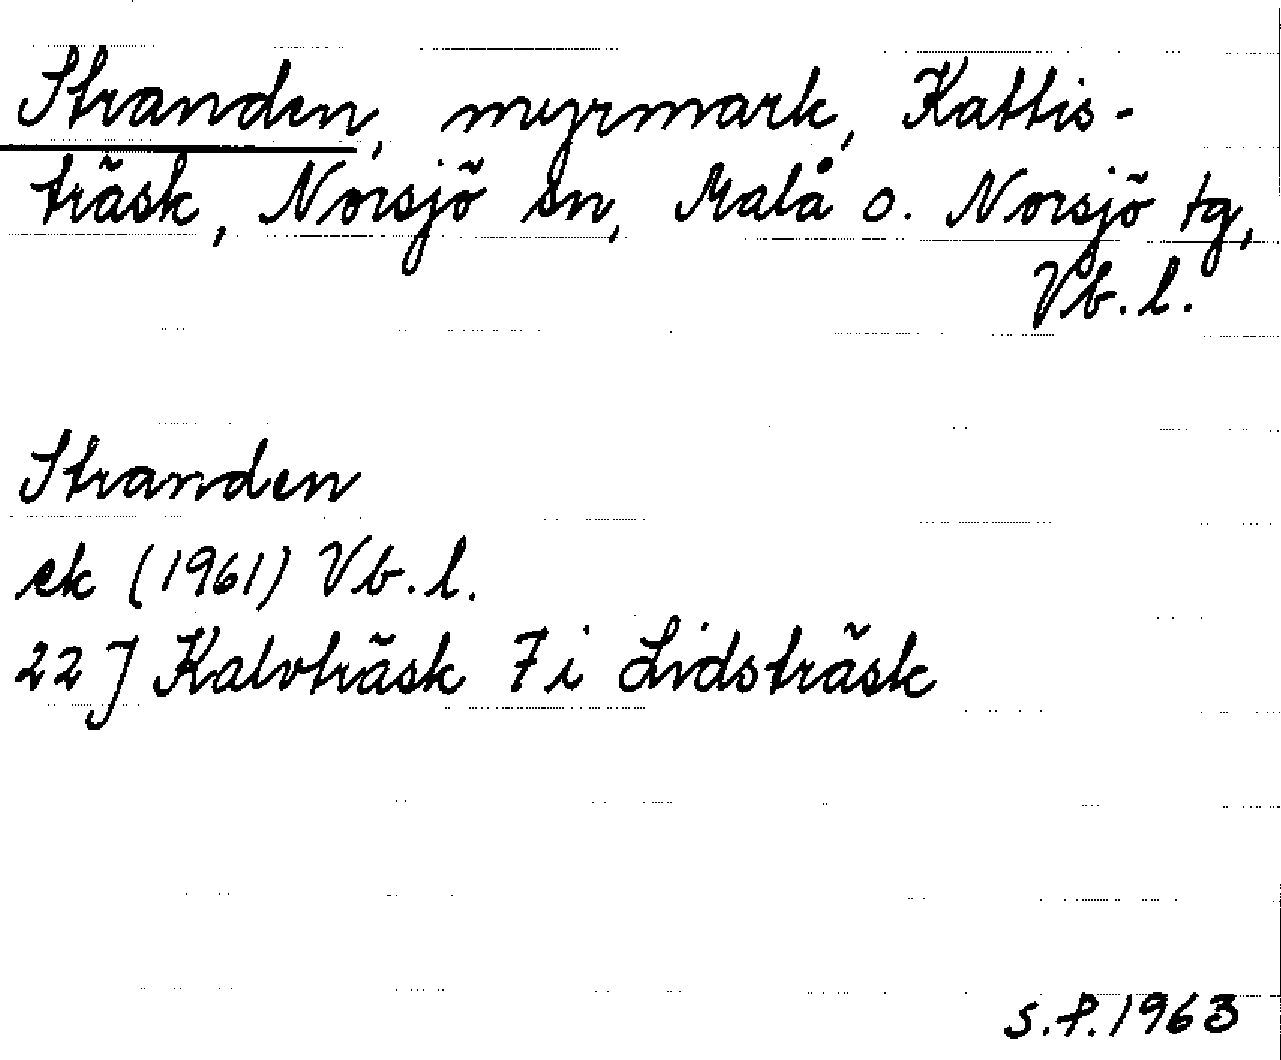 Stranden, myrmark, Kattis-
träsk, Norsjö sn, Malå o. Norsjö tg,
Vb. l.
Stranden
ek (1961) Vb. l.
22 J Kalvträsk 7 i Lidsträsk
S.P. 1963